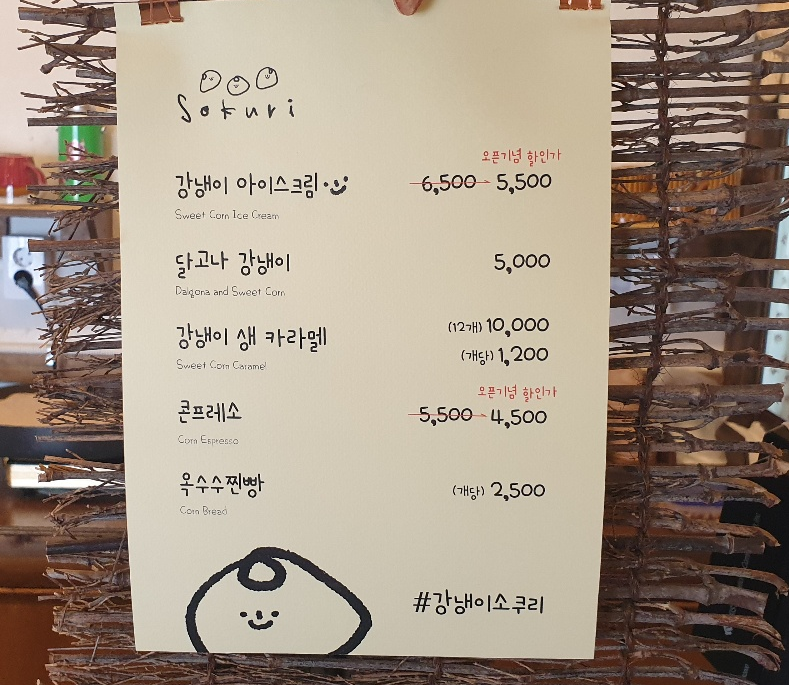 Sokuri
오픈기념 할인가
강냉이 아이스크림 6,500 5,500
Sweet Corn Ice Cream
달고나 강냉이 5,000
Dalgona and Sweet Corn
강냉이 생 카라멜 (12개) 10,000
(개당) 1,200
Sweet Corn Caramel
오픈기념 할인가
콘프레소 5,500 4,500
Corn Espresso
옥수수찐빵 (개당) 2,500
Corn Bread
#강냉이소쿠리